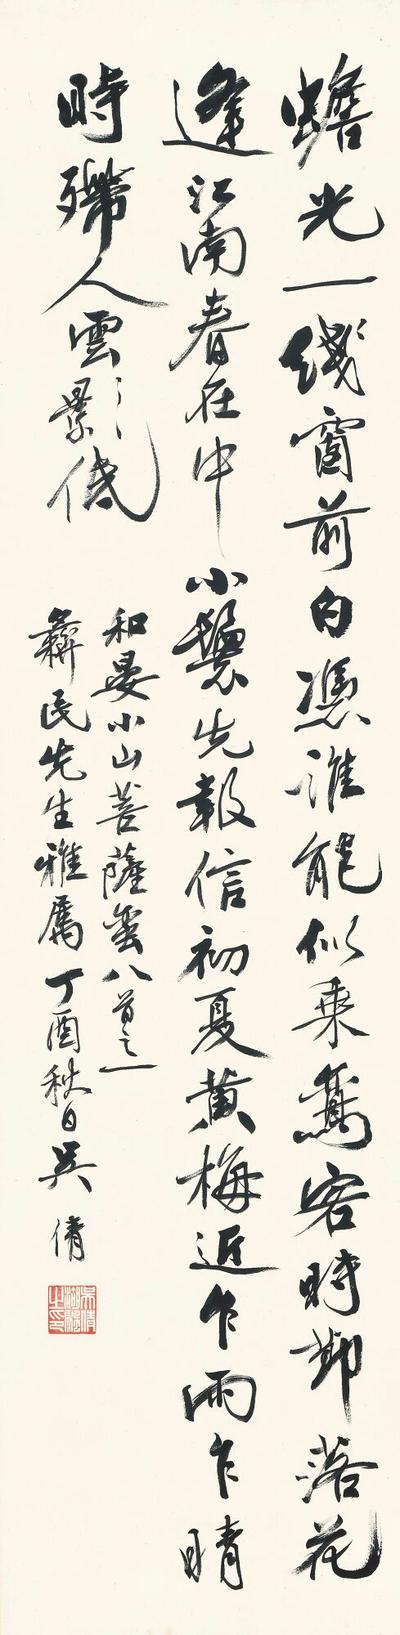 蟾光一綫窗前白憑誰能似乘鸞客時節落花
逢江南春在中小鬟先報信初夏黄梅近乍雨乍晴
時殢人雲影低
和晏小山菩薩蠻八首之一
彝民先生雅屬丁酉秋日吳倩